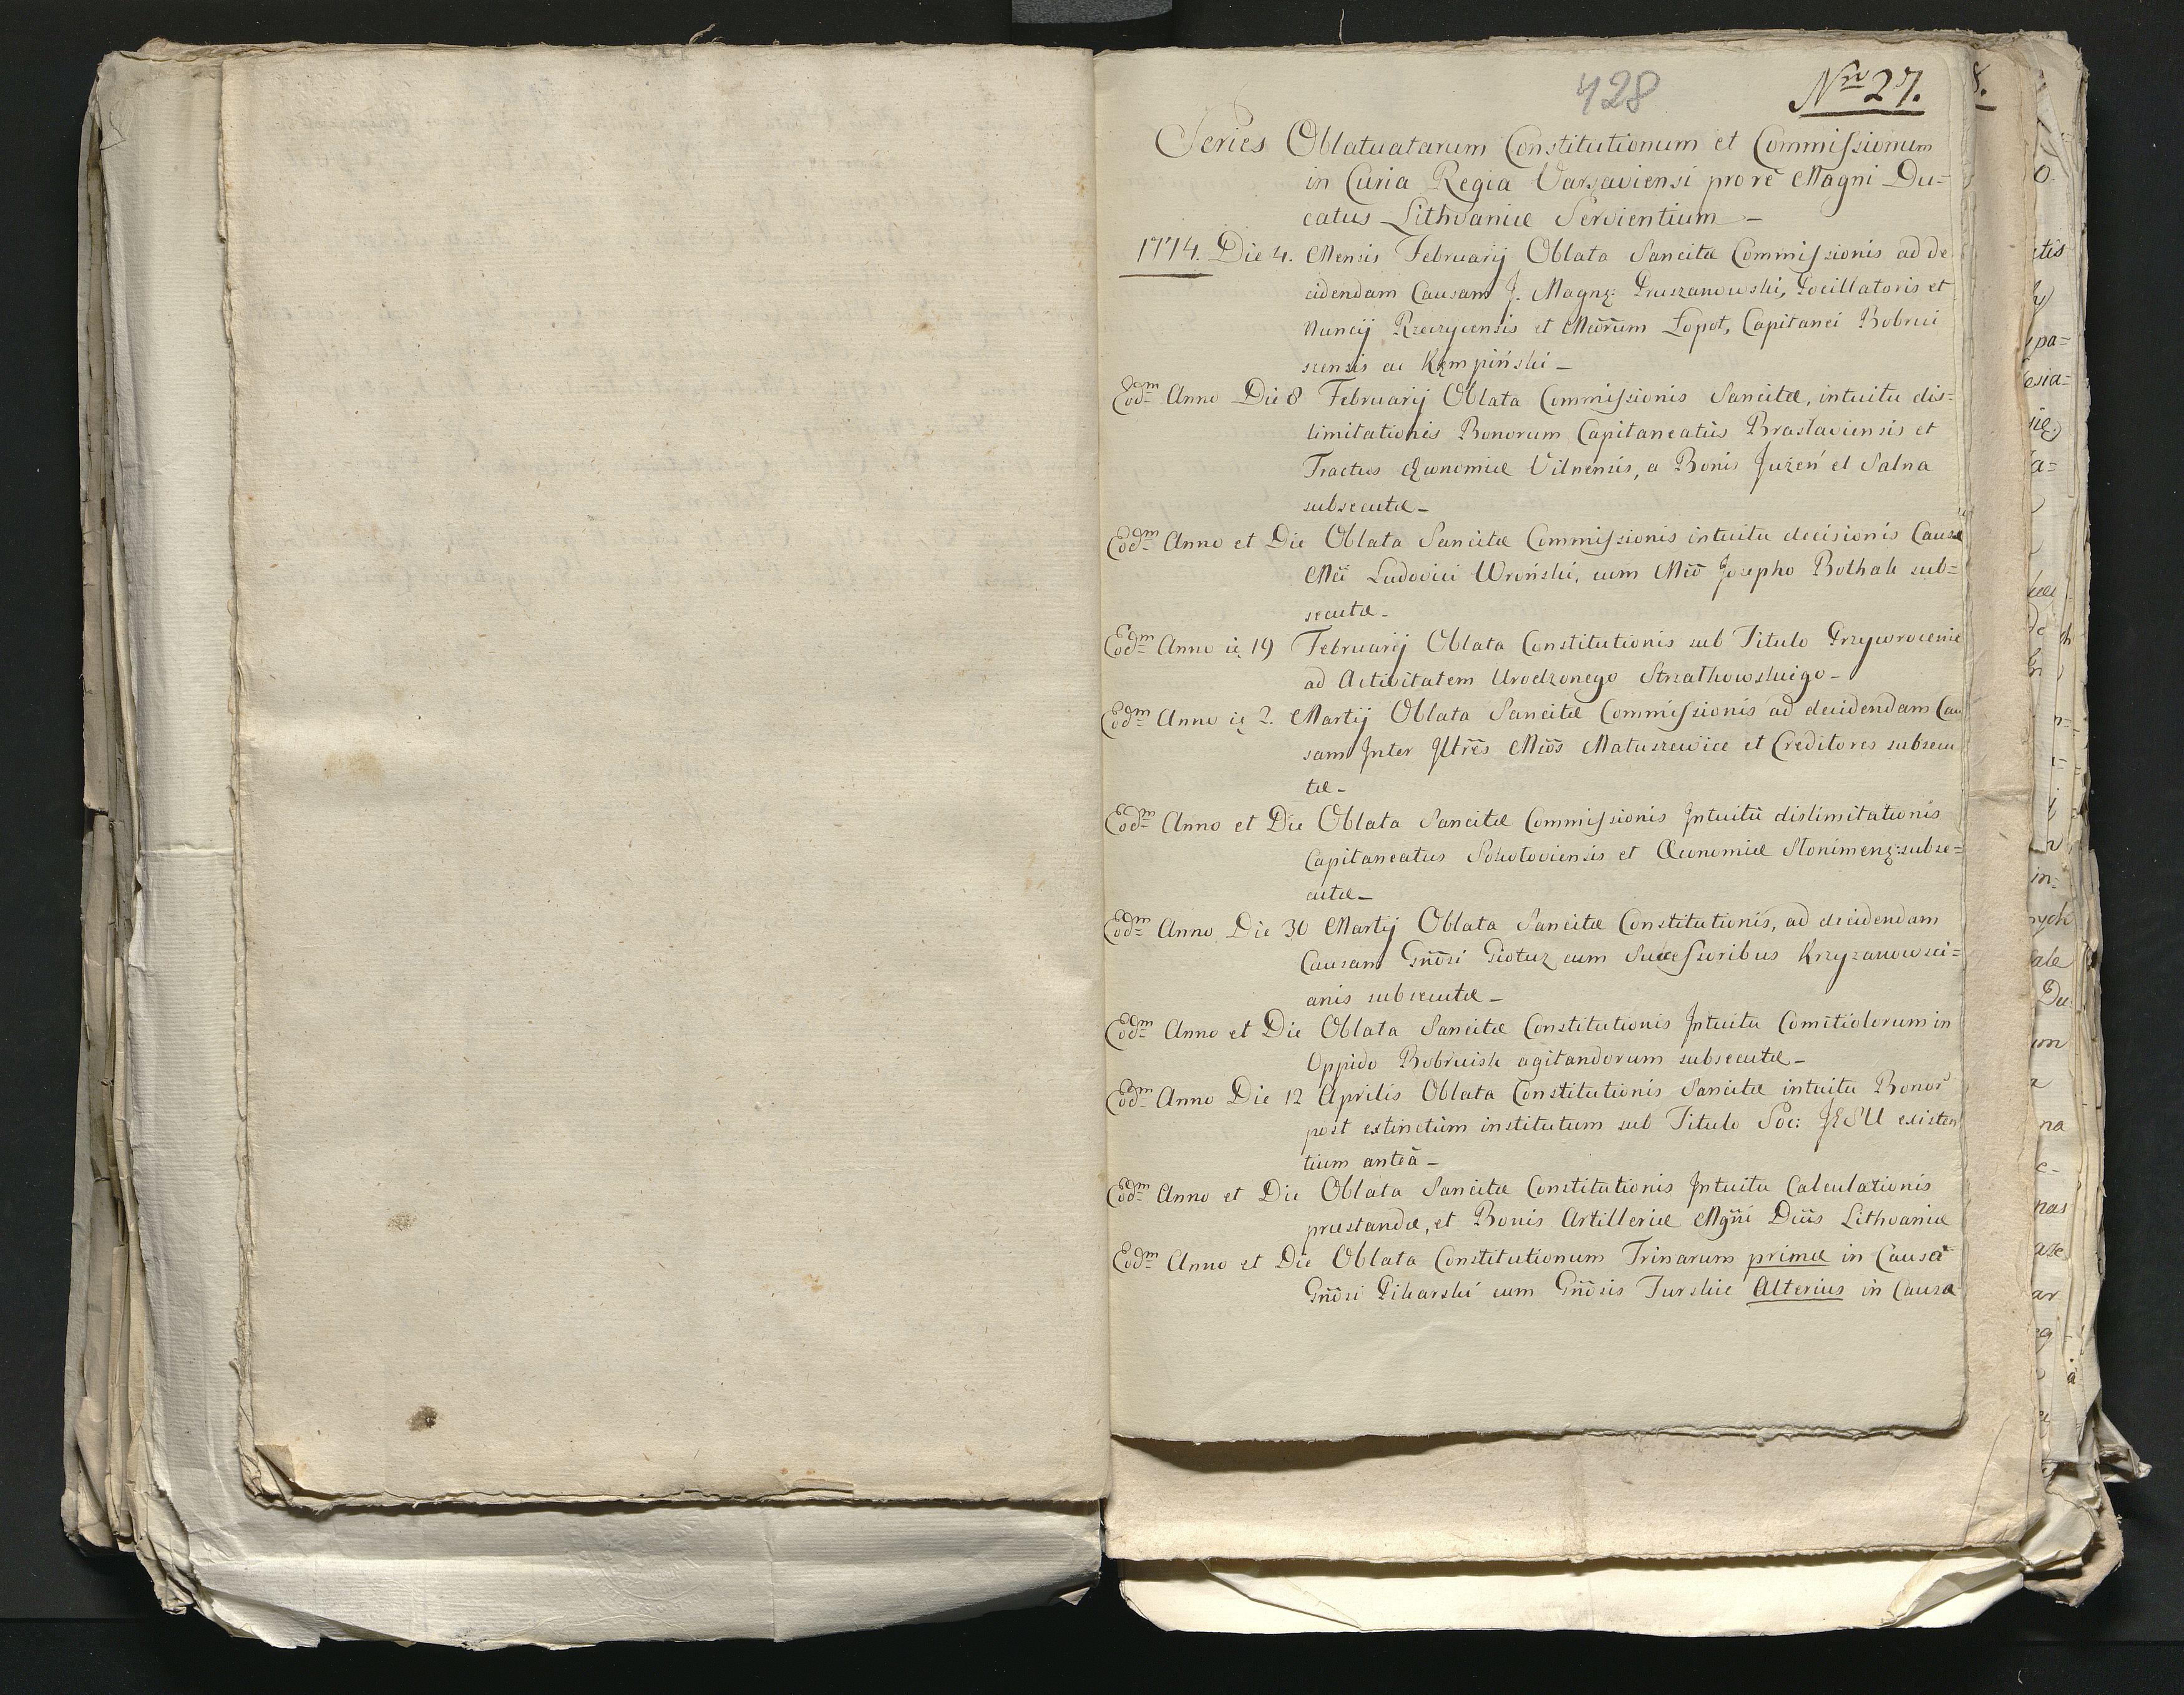 428
Nro 27.
Series Oblatuatarum Constitutionum et Commissionum
in Curia Regia Varsaviensi pro re Magni Du=
catus Lithvaniæ Servientium –
1774. Die 4. Mensis Februarij Oblata Sancitæ Commissionis ad de
cidendam Causam J. Magng: Pruszanowski, Pocillatoris et
Nuncij Rzeczycensis et Mcorum Lopot, Capitanei Bobrui
scensis ac Kępiński –
Eodm Anno Die 8 Februarij Oblata Commissionis Sancitæ, intuitu dis=
limitationis Bonorum Capitaneatûs Braslaviensis et
Tractus Œconomiæ Vilnensis, a Bonis Jużeń et Salna
subsecutæ –
Eodm Anno et Die Oblata Sancitæ Commissionis intuitu decisionis Causæ
Mci Ludovici Wroński, cum Mco Josepho Bothak sub=
secutæ –
Eodm Anno ię 19 Februarij Oblata Constitutionis sub Titulo Przywrocenie
ad Activitatem Urodzonego Strzałkowskiego –
Eodm Anno ię 2. Martij Oblata Sancitæ Commissionis ad decidendam Cau
sam Inter Illres Mcos Matuszewice et Creditores subsecu
tæ –
Eodm Anno et Die Oblata Sancitæ Commissionis Intuitû dislimitationis
Capitaneatus Sokotoviensis et Œconomiæ Slonimeng: subse=
cutæ –
Eodm Anno Die 30 Martij Oblata Sancitæ Constitutionis, ad decidendam
Causam Gnosi Giotuz cum Successoribus Krzyzanowsci=
anis subsecutæ –
Eodm Anno et Die Oblata Sancitæ Constitutionis Intuitu Comitiolorum in
Oppido Bobruisk agitandorum subsecutæ –
Eodm Anno Die 12 Aprilis Oblata Constitutionis Sancitæ intuitu Bonor
post extinctum institutum sub Titulo Soc: JESU existen
tium anteà –
Eodm Anno et Die Oblata Sancitæ Constitutionis Intuitu Calculationis
præstandæ, et Bonis Artilleriæ Mgni Dûs Lithvaniæ
Eodm Anno et Die Oblata Constitutionum Trinarum primæ in Causâ
Gnosi Pikarski cum Gnosis Turskie Alterius in Causa